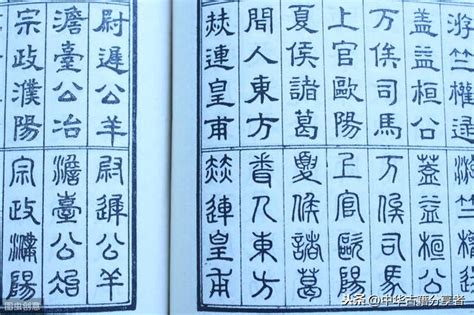 游竺權逯
蓋益桓公
万俟司馬
上官歐陽
夏侯諸葛
聞人東方
赫連皇甫
尉遲公羊
澹臺公冶
宗政濮陽
游竺權逯
蓋益桓公
万俟司馬
上官歐陽
夏侯諸葛
聞人東方
赫連皇甫
尉遲公羊
澹臺公冶
宗政濮陽
图虫创意
头条@中华古籍分享者